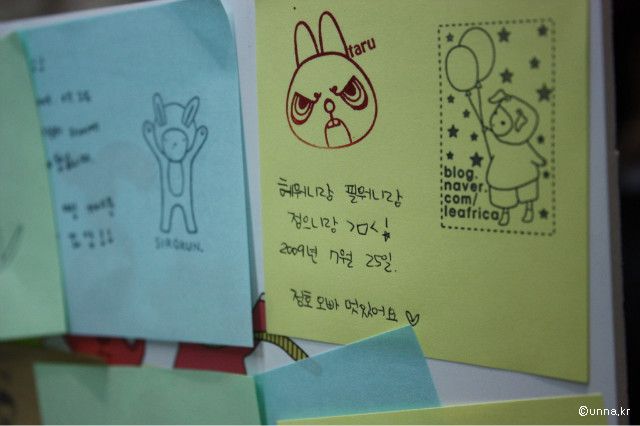 taru
blog.
naver.
com/
leafrica
혜워니랑 필워니랑
점으니랑 >ㅁ<!
2009년 7월 25일.
점토 오빠 멋있어요 ♡
SIROKUN.
©unna.kr